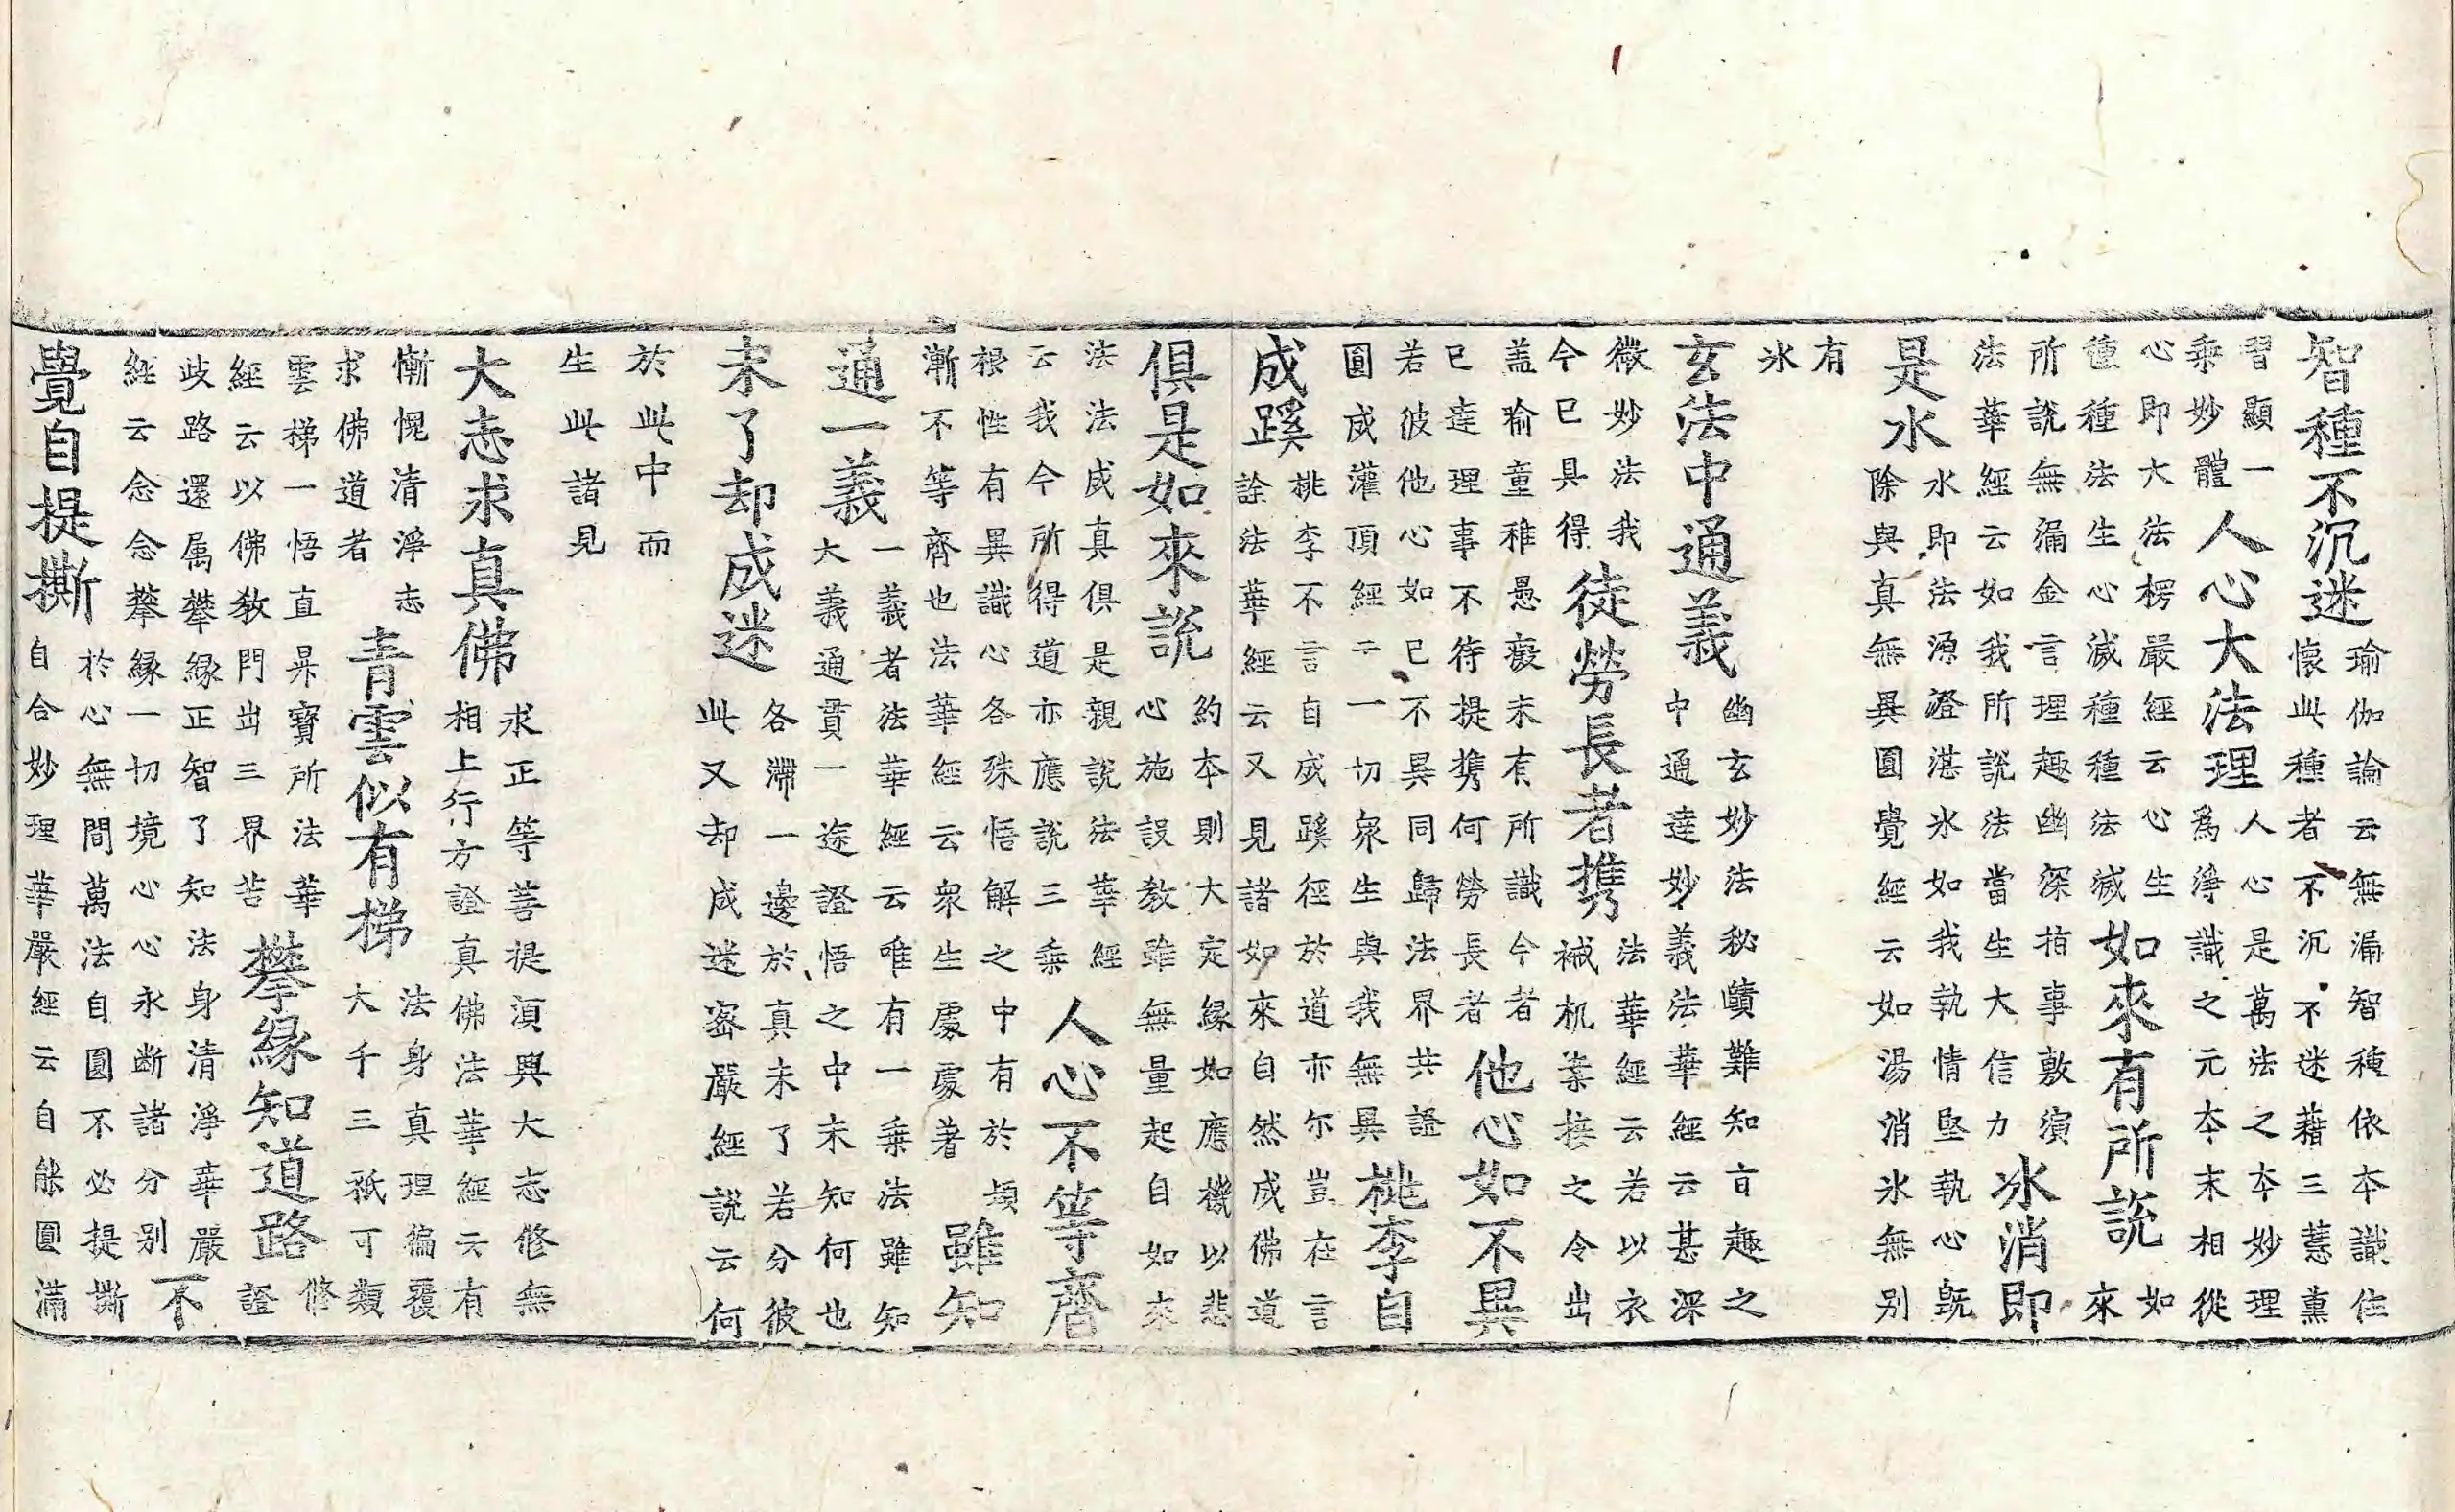 智種不沉迷 瑜伽論云無漏智種依本識住懷此種者不沉不迷藉三慧熏
習顯一乘妙體 人心大法理 人心是萬法之本妙理為淨識之元本末相從
心即大法楞嚴經云心生種種法生心滅種種法滅 如來有所說 如來
所說無漏金言理趣幽深指事敷演法華經云如我所說法當生大信力 氷消即
是水 水即法源澄湛氷如我執情堅執心旣除與真無異圓覺經云如湯消氷無别
有氷
玄法中通義 幽玄妙法秘賾難知旨趣之中通達妙義法華經云甚深
微妙法我今已具得 徒勞長者携 法華經云若以衣裓机案接之令出
盖喻童稚愚癡未有所識今者已達理事不待提携何勞長者 他心如不異
若彼他心如已不異同歸法界共證圓成灌頂經云一切衆生與我無異 桃李自
成蹊 桃李不言自成蹊徑於道亦尔豈在言詮法華經云又見諸如來自然成佛道
俱是如來說 約本則大定縁如應機以悲心施設教雖無量起自如來
法法成真俱是親說法華經云我今所得道亦應說三乘 人心不等齊
根性有異識心各殊悟解之中有於頓漸不等齊也法華經云衆生處處著 雖知
通一義 一義者法華經云唯有一乘法雖知大義通貫一途證悟之中未知何也
未了却成迷 各滯一邊於真未了若分彼此又却成迷密嚴經說云何
於此中而生此諸見
大志求真佛 求正等菩提湏興大志修無相上行方證真佛法華經云有
慚愧清淨志求佛道者 青雲似有梯 法身真理徧覆大千三祇可類
雲梯一悟直昇寶所法華經云以佛教門出三界苦 攀縁知道路 修證
歧路還属攀縁正智了知法身清淨華嚴經云念念攀縁一切境心心永断諸分别 不
覺自提撕 於心無間萬法自圓不必提撕自合妙理華嚴經云自能圓滿